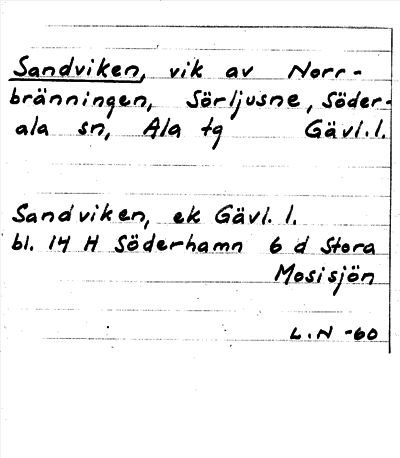 Sandviken, vik av Norr-
bränningen, Sörljusne, Söder-
ala sn, Ala tg Gävl.l.
Sandviken, ek Gävl. l.
bl. 14 H Söderhamn 6 d Stora
Mosisjön
L.N -60